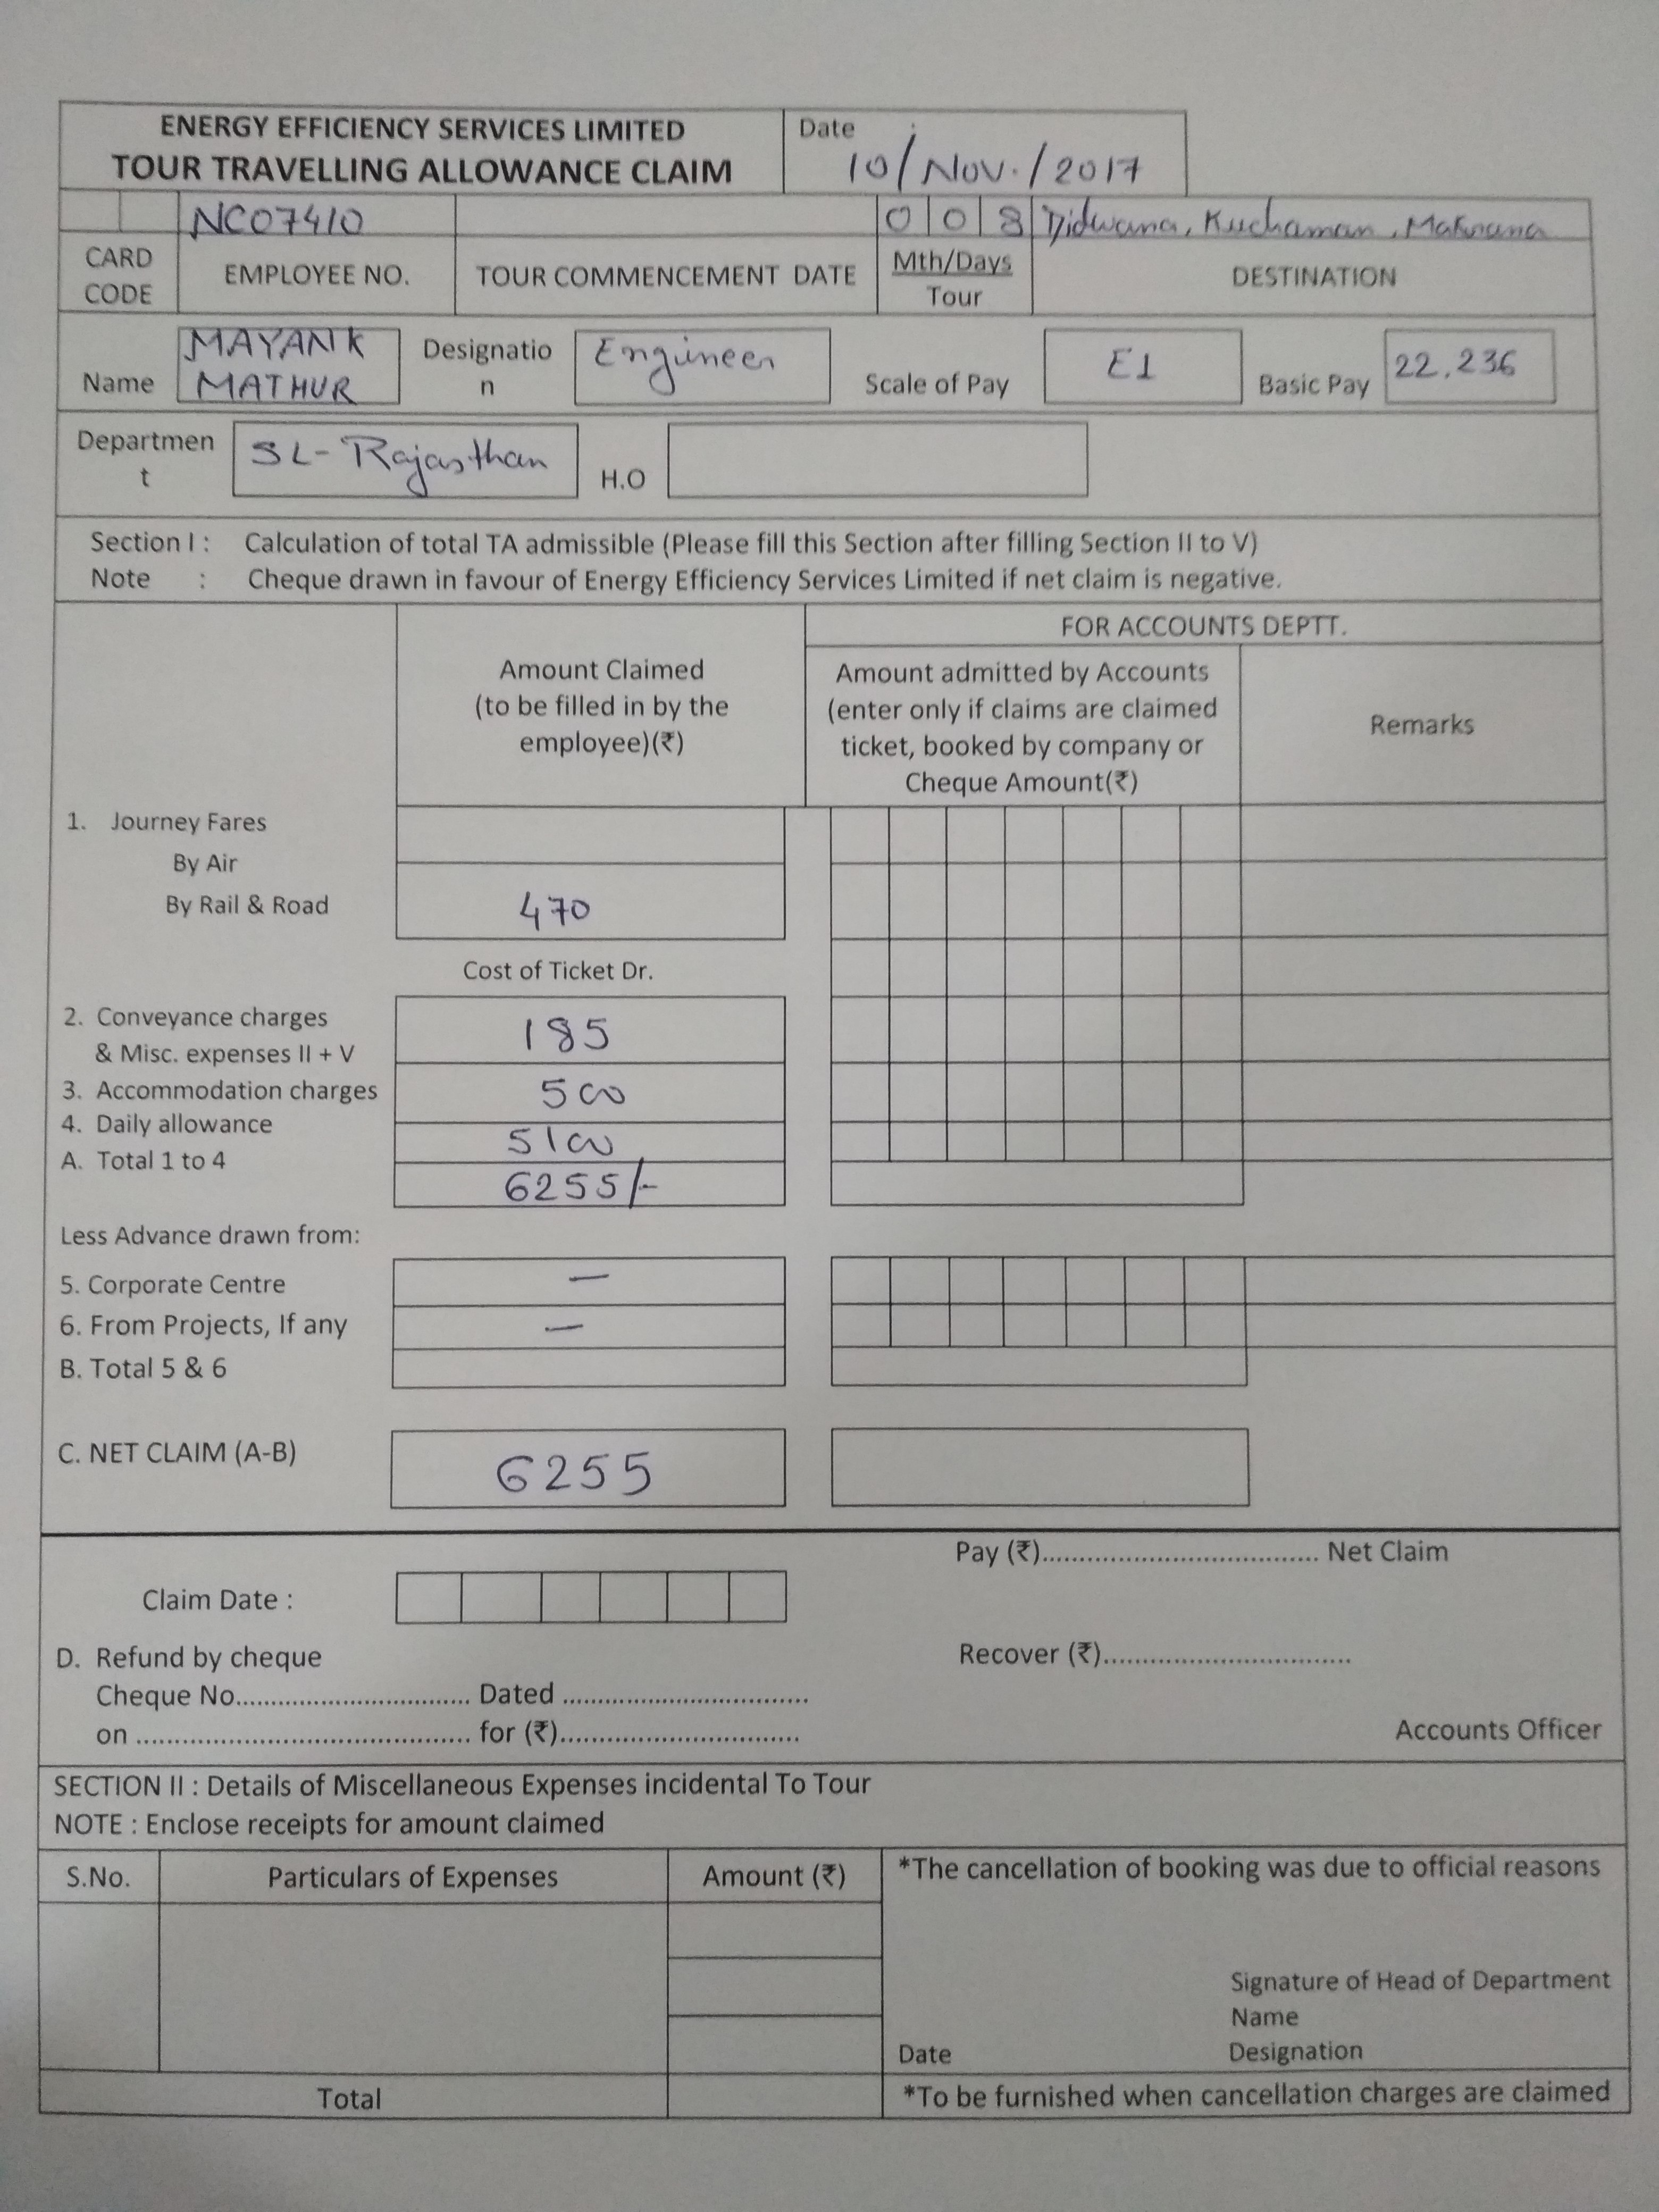 ENERGY EFFICIENCY SERVICES LIMITED
TOUR TRAVELLING ALLOWANCE CLAIM
Date
10/Nov./2017
NC07410 0 0 8 Didwana, Kuchaman, Makrana
CARD CODE EMPLOYEE NO. TOUR COMMENCEMENT DATE Mth/Days Tour DESTINATION
Name MAYANK MATHUR Designation Engineer Scale of Pay E1 Basic Pay 22,236
Department SL-Rajasthan H.O
Section I : Calculation of total TA admissible (Please fill this Section after filling Section II to V)
Note : Cheque drawn in favour of Energy Efficiency Services Limited if net claim is negative.
FOR ACCOUNTS DEPTT.
Amount Claimed
(to be filled in by the
employee)(₹)
Amount admitted by Accounts
(enter only if claims are claimed
ticket, booked by company or
Cheque Amount(₹)
Remarks
1. Journey Fares
By Air
By Rail & Road 470
Cost of Ticket Dr.
2. Conveyance charges
& Misc. expenses II + V 185
3. Accommodation charges 500
4. Daily allowance 5100
A. Total 1 to 4 6255/-
Less Advance drawn from:
5. Corporate Centre —
6. From Projects, If any —
B. Total 5 & 6
C. NET CLAIM (A-B) 6255
Pay (₹)................................... Net Claim
Claim Date :
D. Refund by cheque
Recover (₹)................................
Cheque No.............................. Dated ................................
on ........................................... for (₹)...............................
Accounts Officer
SECTION II : Details of Miscellaneous Expenses incidental To Tour
NOTE : Enclose receipts for amount claimed
S.No. Particulars of Expenses Amount (₹) *The cancellation of booking was due to official reasons
Signature of Head of Department
Name
Date Designation
Total *To be furnished when cancellation charges are claimed